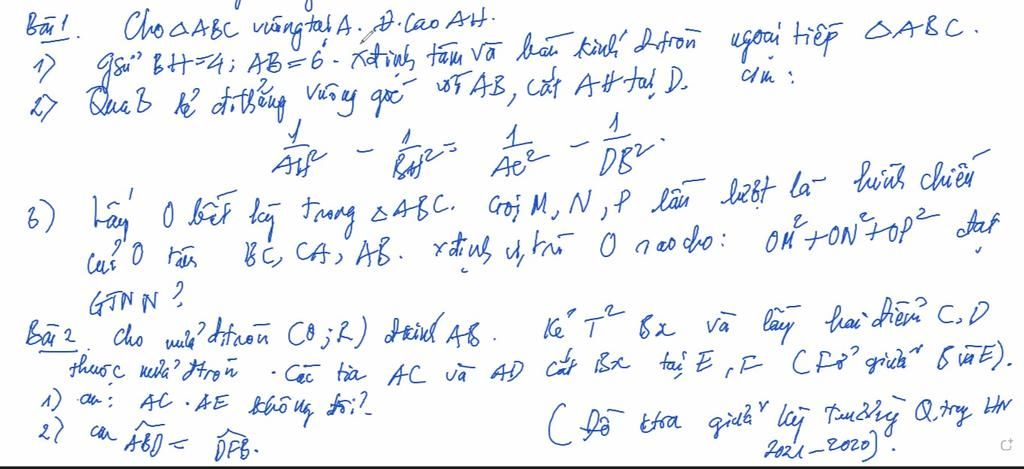 Bài 1. Cho △ABC vuông tại A. Đ. cao AH.
1) gsử BH=4; AB=6. xđịnh tâm và bán kính đtròn ngoại tiếp △ABC.
2) Qua B kẻ đ.thẳng vuông góc với AB, cắt AH tại D. cm:
1/AH² - 1/BH² = 1/AC² - 1/DB².
3) Lấy O bất kỳ trong △ABC. Gọi M, N, P lần lượt là hình chiếu
của O trên BC, CA, AB. xđịnh vị trí O sao cho: OM²+ON²+OP² đạt
GTNN?
Bài 2. Cho nửa đtròn (O;R) đkính AB. Kẻ T² Bx và lấy hai điểm C, D
thuộc nửa đtròn. Các tia AC và AD cắt Bx tại E, F (F ở giữa B và E).
1) cm: AC.AE không đổi?
2) cm ABD = DFB.
(Đề ktra giữa kỳ Q. HN
2021-2020).